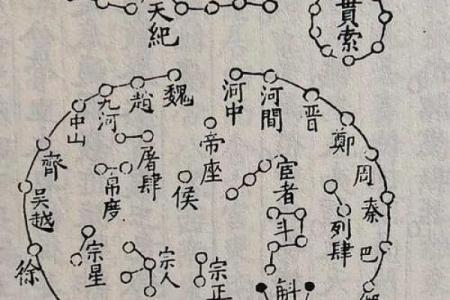 天紀
貫索
魏
趙
九河
中山
齊
吳越
徐
河中
河間
晋
鄭
周
秦
巴
帝座
屠肆
帛度
侯
宦者
斗
列肆
宗星
宗人
宗正
斛